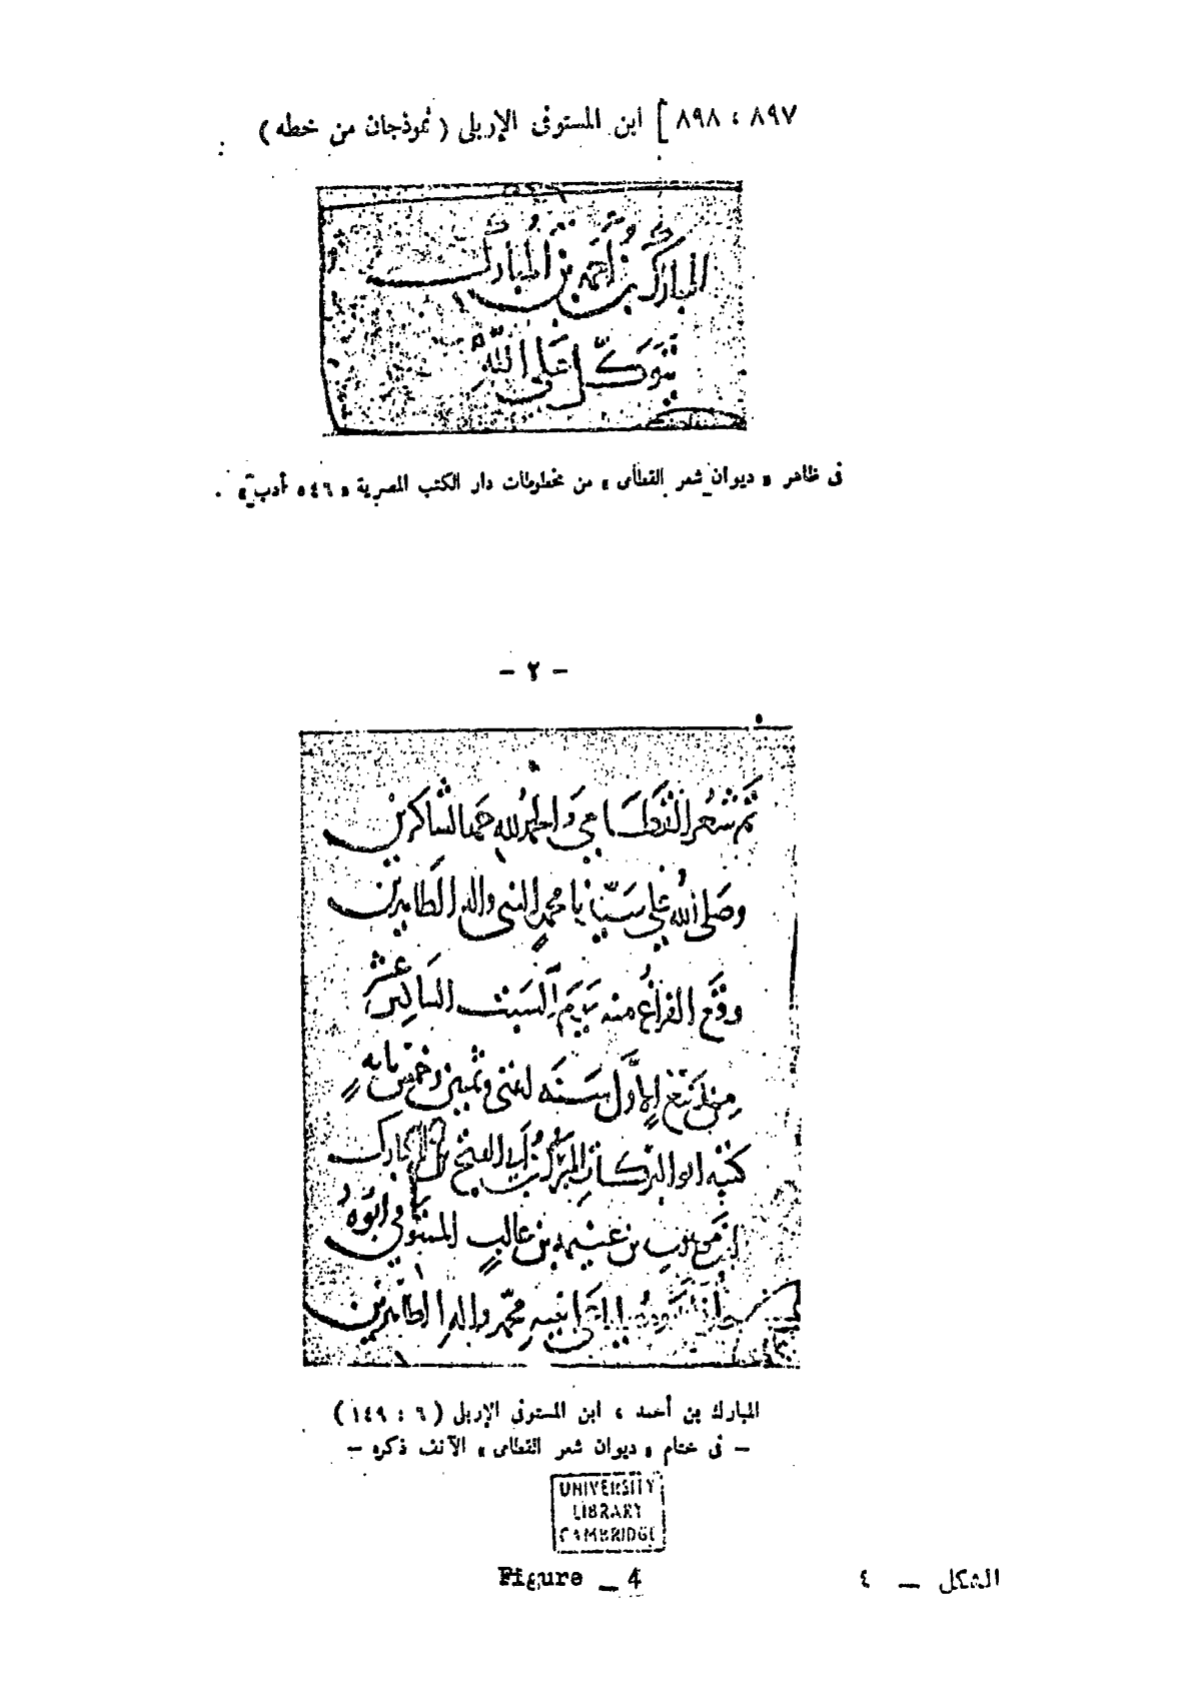 ٨٩٧ ، ٨٩٨ ] ابن المستوفى الإربلى ( نموذجان من خطه )
المبارك بن أحمد بن المبارك
يتوكل على الله
فى ظاهر « ديوان شعر القطامى » من مخطوطات دار الكتب المصرية « ٥٤٦ أدب » .
– ٢ –
تم شعر القطامي والحمد لله حمد الشاكرين
وصلى الله على سيدنا محمد النبي واله الطاهرين
وقع الفراغ منه يوم السبت السادس عشر
من ربيع الاول سنة اثنتي وثمنين وخمس مايه
كتبه ابو البركات المبارك بن ابي الفتح بن المبارك
ابن موهوب بن غنيمه بن غالب المستوفي ابوه
محمد واله الطاهرين
المبارك بن أحمد ، ابن المستوفى الإربلى ( ٦ : ١٤٩ )
– فى ختام « ديوان شعر القطامى » الآنف ذكره –
UNIVERSITY
LIBRARY
CAMBRIDGE
Figure _ 4
الشكل – ٤